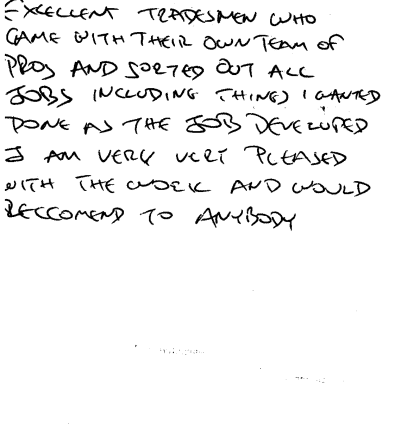 EXCELLENT TRADESMEN WHO
CAME WITH THEIR OWN TEAM OF
PROS AND SORTED OUT ALL
JOBS INCLUDING THINGS I WANTED
DONE AS THE JOB DEVELOPED
I AM VERY VERY PLEASED
WITH THE WORK AND WOULD
RECCOMEND TO ANYBODY